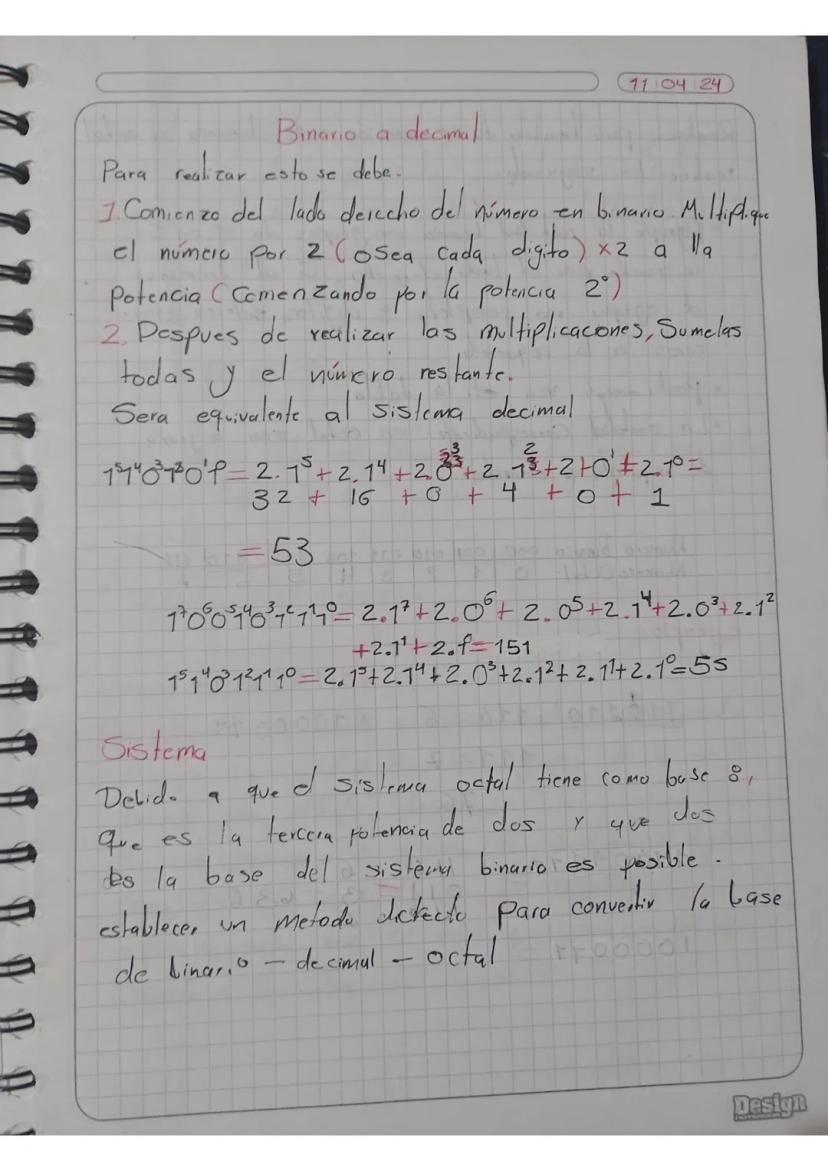 11 04 24
Binario a decimal
Para realizar esto se debe.
1. Comienzo del lado derecho del número en binario Multiplique
el número por 2 (osea cada digito) x2 a lla
potencia (Comenzando por la potencia 2⁰)
2. Despues de realizar las multiplicaciones, Sumelas
todas y el número restante.
Sera equivalente al sistema decimal
1⁵1⁴0³1²0¹1⁰ = 2.1⁵ + 2.1⁴ + 2.0³ + 2.1² + 2+0¹ + 2.1⁰ =
32 + 16 + 0 + 4 + 0 + 1
= 53
1⁷0⁶0⁵1⁴0³1²1¹1⁰ = 2.1⁷ + 2.0⁶ + 2.0⁵ + 2.1⁴ + 2.0³ + 2.1²
+2.1¹ + 2.1⁰ = 151
1⁵1⁴0³1²1¹1⁰ = 2.1⁵ + 2.1⁴ + 2.0³ + 2.1² + 2.1¹ + 2.1⁰ = 55
Sistema
Debido a que el sistema octal tiene como base 8,
que es la tercera potencia de dos y que dos
es la base del sistema binario es posible.
establecer un metodo directo para convertir la base
de binario - decimal - octal
Design